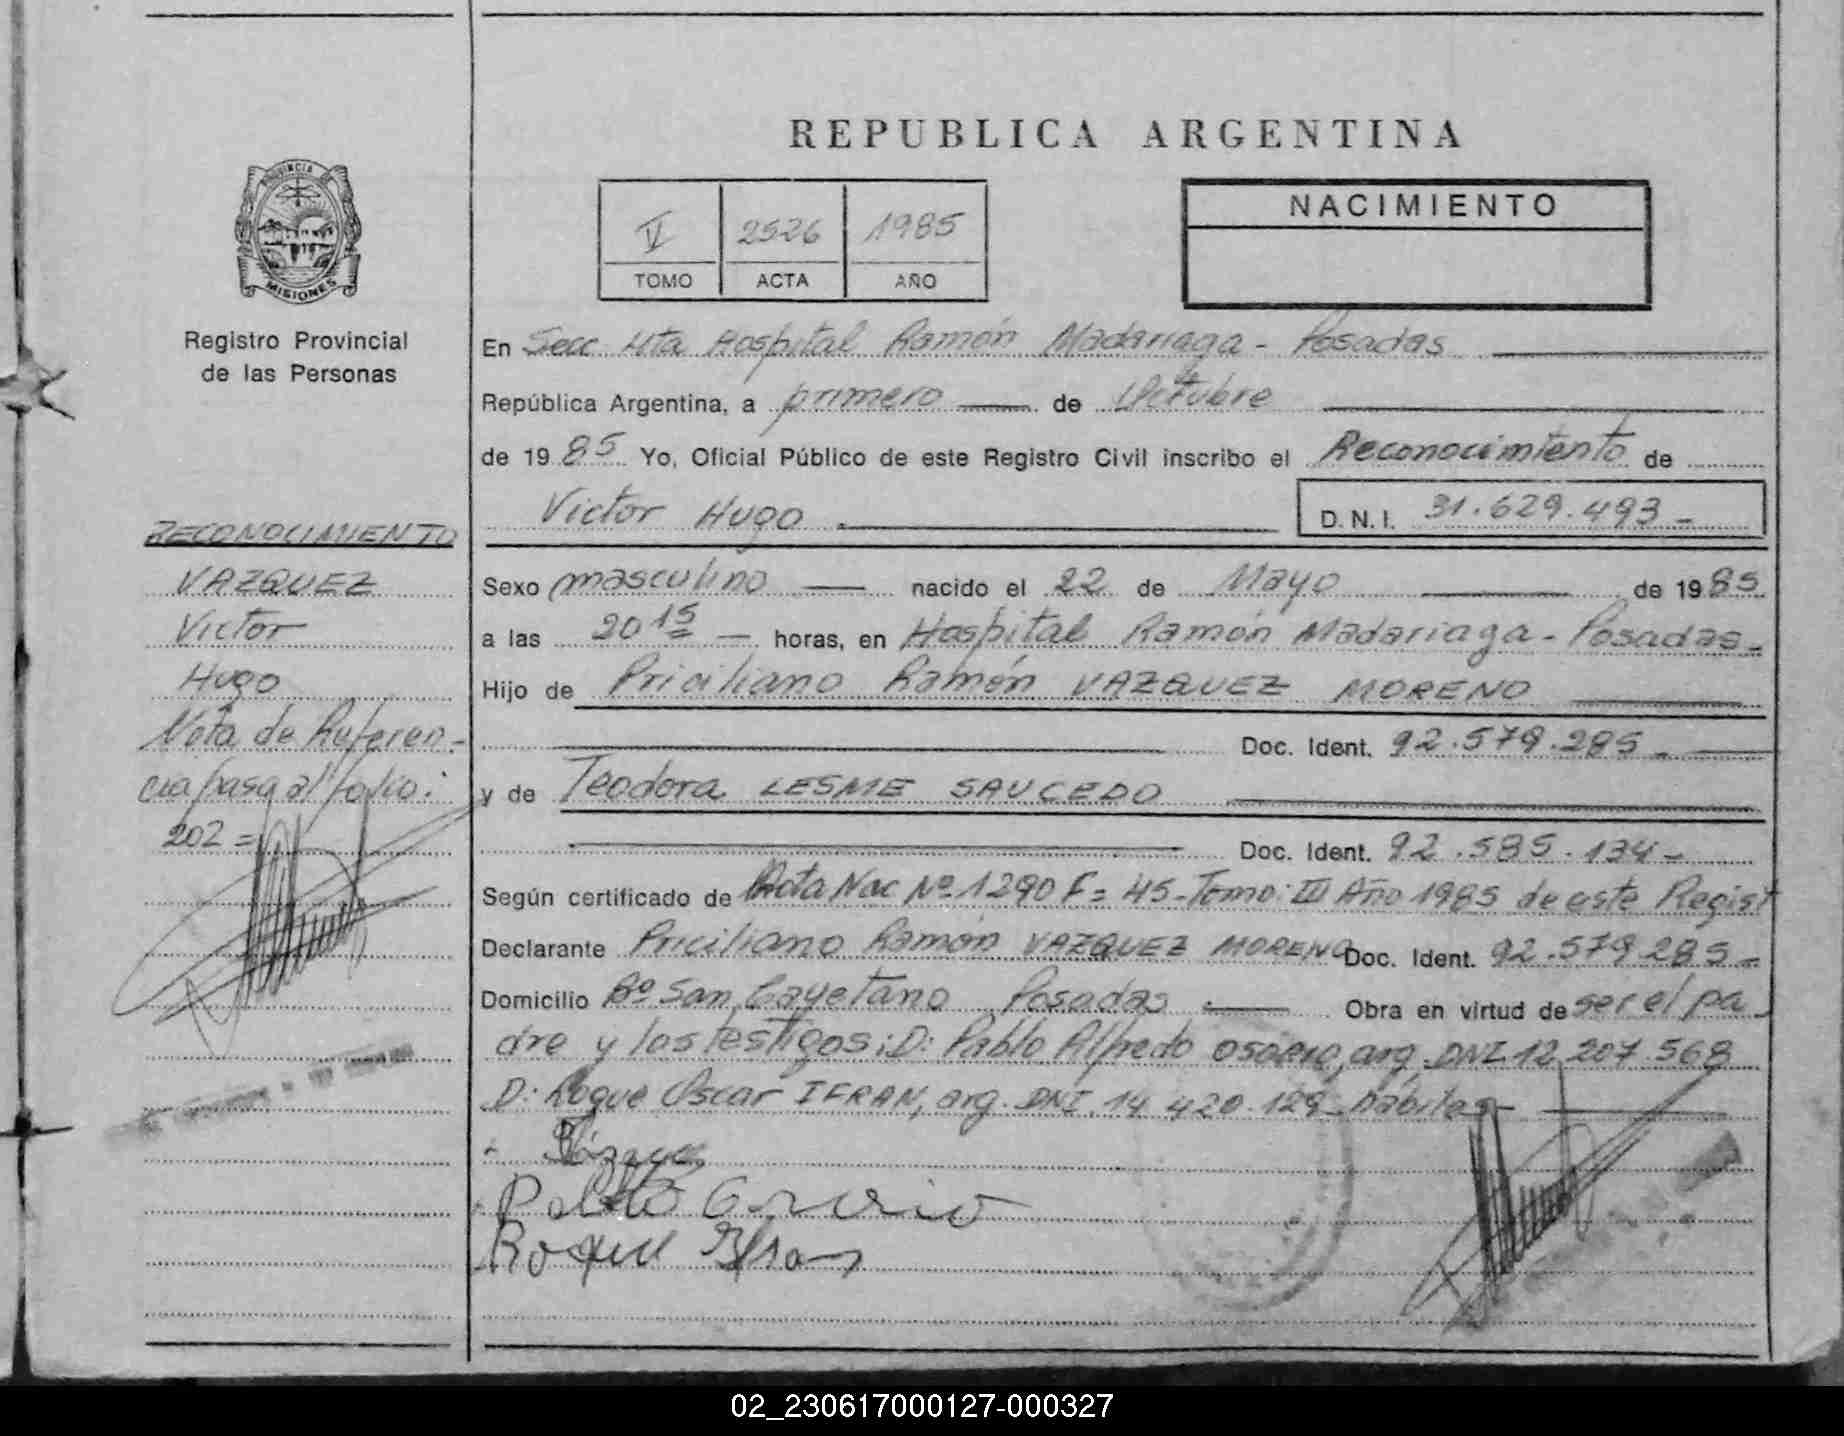 REPUBLICA ARGENTINA
PROVINCIA DE
MISIONES
Registro Provincial
de las Personas
V 2526 1985
TOMO ACTA AÑO
NACIMIENTO
En Secc 4ta Hospital Ramón Madariaga - Posadas
República Argentina, a primero de Octubre
de 1985 Yo, Oficial Público de este Registro Civil inscribo el Reconocimiento de
Victor Hugo D.N.I. 31.629.493-
Sexo masculino nacido el 22 de Mayo de 1985
a las 20 15 horas, en Hospital Ramón Madariaga - Posadas-
Hijo de Priciliano Ramón VAZQUEZ MORENO
Doc. Ident. 92.579.285-
y de Teodora LESME SAUCEDO
Doc. Ident. 92.585.134-
Según certificado de Acta Nac Nº 1290 F= 45-Tomo: III Año 1985 de este Regist
Declarante Priciliano Ramón VAZQUEZ MORENO Doc. Ident. 92.579.285-
Domicilio Bº San Cayetano Posadas Obra en virtud de ser el pa
dre y los testigos: D: Pablo Alfredo OSORIO, arg. DNI 12.207.568
D: Roque Oscar IFRAN, arg. DNI. 14.420.129 hábiles-
Pablo Osorio
Roque Ifran
RECONOCIMIENTO
VAZQUEZ
Victor
Hugo
Nota de Referen-
cia pasa al folio:
202=
02_230617000127-000327